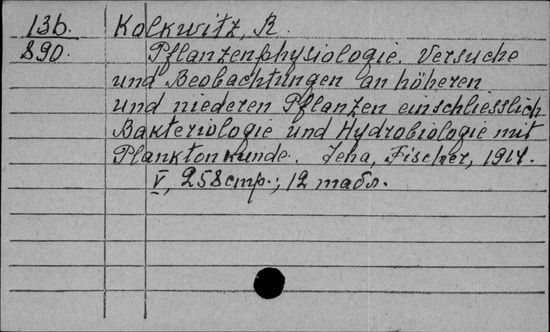 13b. Kolkwitz, R.
890. Pflanzenphysiologie. Versuche
und Beobachtungen an höheren
und niederen Pflanzen einschliesslich
Bakteriologie und Hydrobiologie mit
Planktonkunde. Jena, Fischer, 1914.
V, 258 стр.; 12 табл.